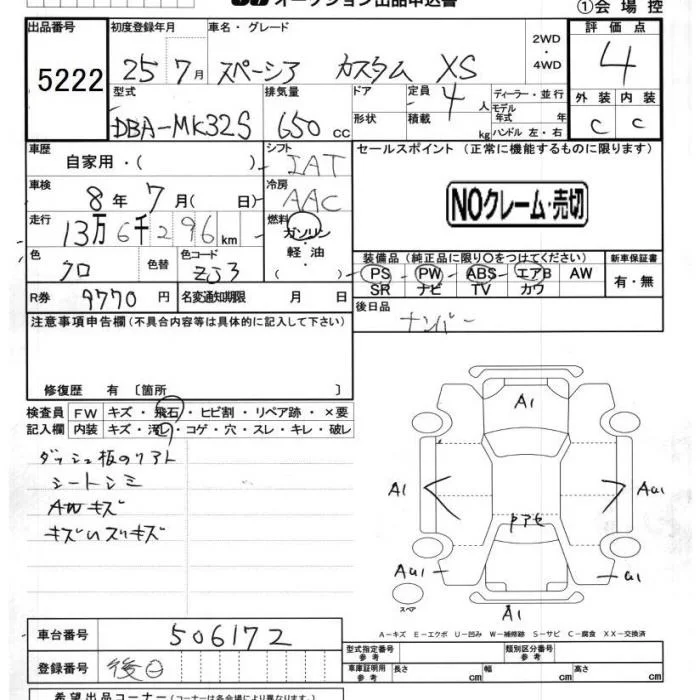 オークション出品申込書
①会場控
出品番号 初度登録年月 車名・グレード 2WD・4WD 評価点
5222 25年7月 スペーシア カスタム XS 4
型式 排気量 ドア 定員 4人 ディーラー・並行 外装 内装
DBA-MK32S 650cc 形状 積載 kg モデル年式 年 ハンドル 左・右 C C
車歴 自家用・( ) シフト IAT セールスポイント (正常に機能するものに限ります)
車検 8年7月( 日) 冷房 AAC NOクレーム・売切
走行 13万6千296km 燃料 ガソリン・軽油 ( )
色 クロ 色替 色コード ZJ3 装備品 (純正品に限り○をつけてください) 新車保証書
PS PW ABS エアB AW 有・無
SR ナビ TV カワ
R券 9770円 名変通知期限 月 日 後日品
ナンバー
注意事項申告欄(不具合内容等は具体的に記入して下さい)
修復歴 有 〔箇所 〕
検査員 FW キズ・飛石・ヒビ割・リペア跡・×要
記入欄 内装 キズ・汚レ・コゲ・穴・スレ・キレ・破レ
シートシミ
AWキズ
A1
A1 AU1
AU1 U1
A1
スペア
A-キズ E-エクボ U-凹み W-補修跡 S-サビ C-腐食 XX-交換済
車台番号 506172 型式指定番号 参考 類別区分番号 参考
登録番号 後日 車庫証明用 参考 長さ cm 幅 cm 高さ cm
希望出品コーナー(コーナーは各会場により異なります)